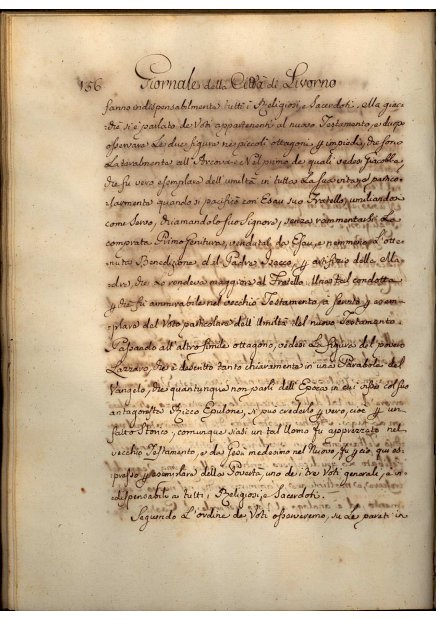 156 Giornale della Città di Livorno
fanno indispensabilmente tutti i Religiosi, e Sacerdoti. Ma giac
che si è parlato de Voti appartenenti al nuovo Testamento, è d'uopo
osservare le due figure ne piccoli ottagoni, che sono
Lateralmente all'Arcova: e Nel primo de quali vedesi Giacobbe,
che fu vero esemplare dell'umiltà in tutta la sua vita, e partico
larmente quando si pacificò con Esaù suo Fratello, umiliandosi
come servo, chiamandolo suo Signore, senza rammentarsi la
comprata Primogenitura, vendutali da Esaù, e nemmeno l'otte
nuta Benedizione dal Padre Isacco p artifizio della Ma
dre, che lo rendeva maggiore al Fratello. Una tal condotta
p che fu ammirabile nel vecchio Testamento, à servito p esem
plare del Voto particolare dell'Umiltà del nuovo Testamento.
Passando all'altro simile ottagono, vedesi la figura del povero
Lazzaro, che è descritto tanto chiaramente in una Parabola del
Vangelo, che quantunque non parli dell'Epoca in cui visse col suo
antagonista Ricco Epulone, si può crederlo p vero, cioè p un
fatto Storico, comunque siasi un tal Uomo fu apprezzato nel
vecchio Testamento, e da Gesù medesimo nel Nuovo, fu p ciò, qui es
presso p esemplare della Povertà, uno dei tre Voti generali, e in
dispensabili a tutti i Religiosi, e Sacerdoti.
Seguendo l'ordine de Voti osserveremo, su le pareti in